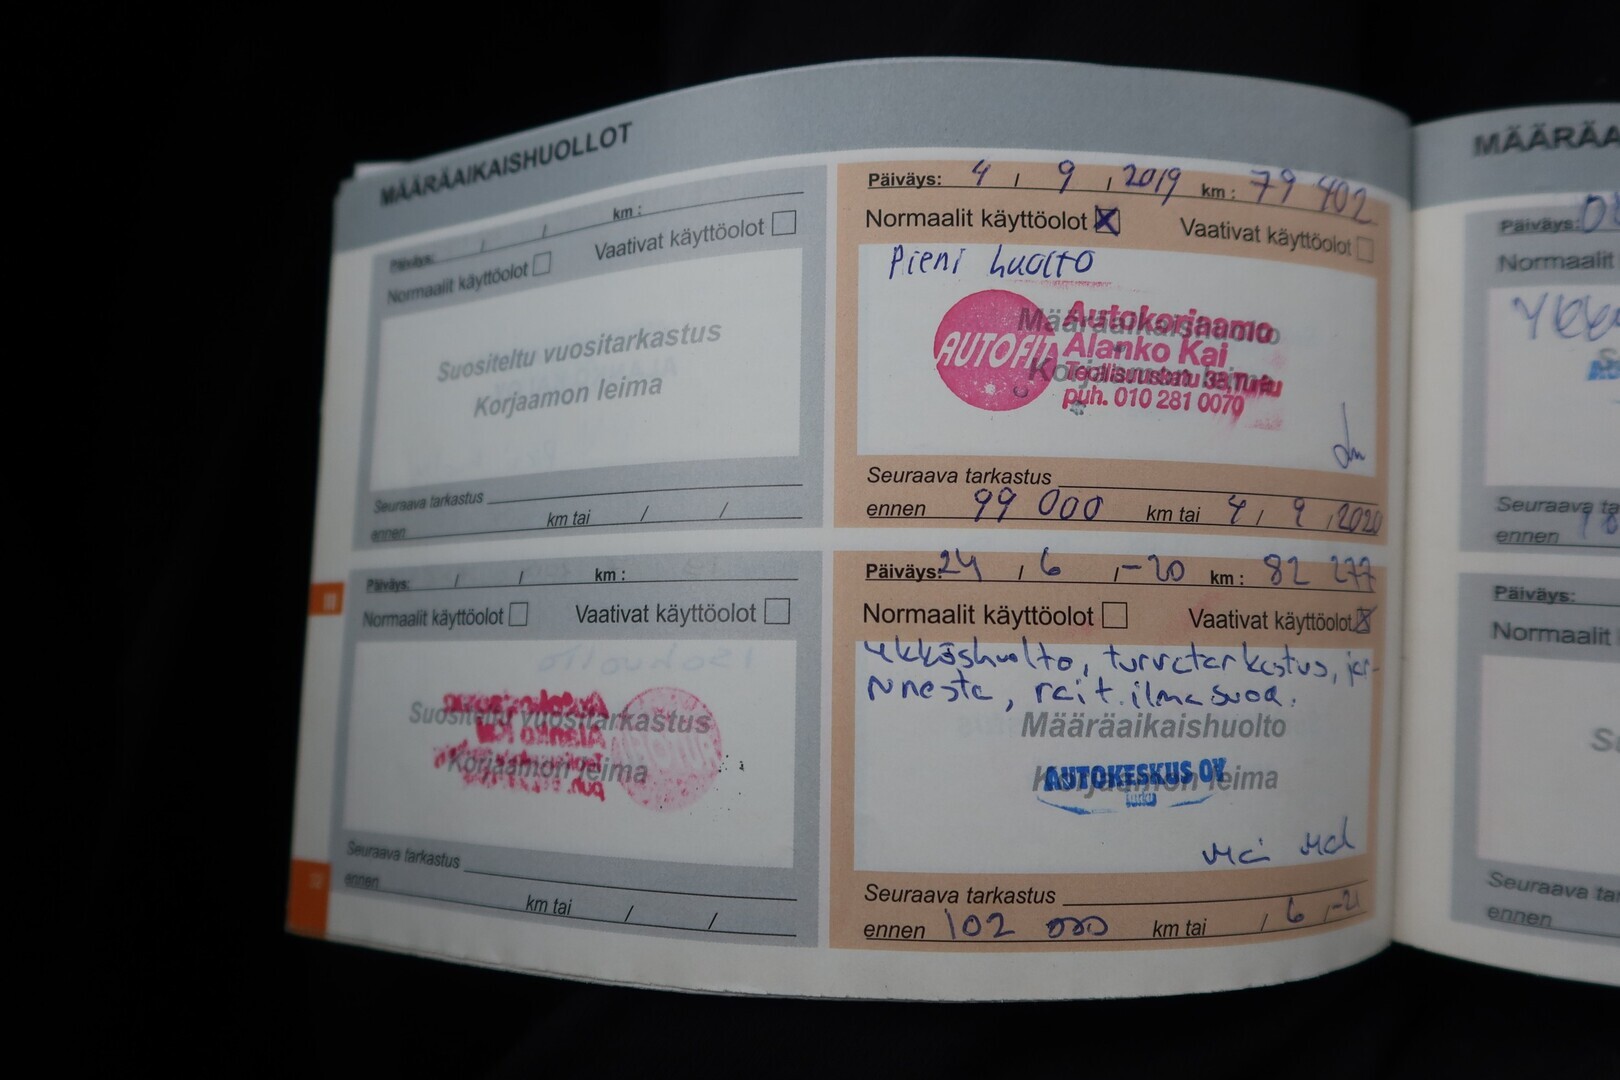 MÄÄRÄAIKAISHUOLLOT
Päiväys: / / km :
Normaalit käyttöolot Vaativat käyttöolot
Suositeltu vuositarkastus
Korjaamon leima
Seuraava tarkastus
ennen km tai / /
Päiväys: 4 / 9 / 2019 km : 79 402
Normaalit käyttöolot Vaativat käyttöolot
Pieni huolto
Määräaikaishuolto
Korjaamon leima
AUTOFIT
Autokorjaamo
Alanko Kai
Teollisuuskatu 35, Turku
puh. 010 281 0070
Seuraava tarkastus
ennen 99 000 km tai 4 / 9 / 2020
Päiväys: / / km :
Normaalit käyttöolot Vaativat käyttöolot
Suositeltu vuositarkastus
Korjaamon leima
Seuraava tarkastus
ennen km tai / /
Päiväys: 24 / 6 / -20 km : 82 277
Normaalit käyttöolot Vaativat käyttöolot
ykköshuolto, turvatarkastus, jar-
runeste, rait.ilmasuod.
Määräaikaishuolto
Korjaamon leima
AUTOKESKUS OY
Turku
Seuraava tarkastus
ennen 102 000 km tai / 6 / -21
MÄÄRÄA
Päiväys:
Normaalit
Seuraava ta
ennen
Päiväys:
Normaalit
Seuraava ta
ennen